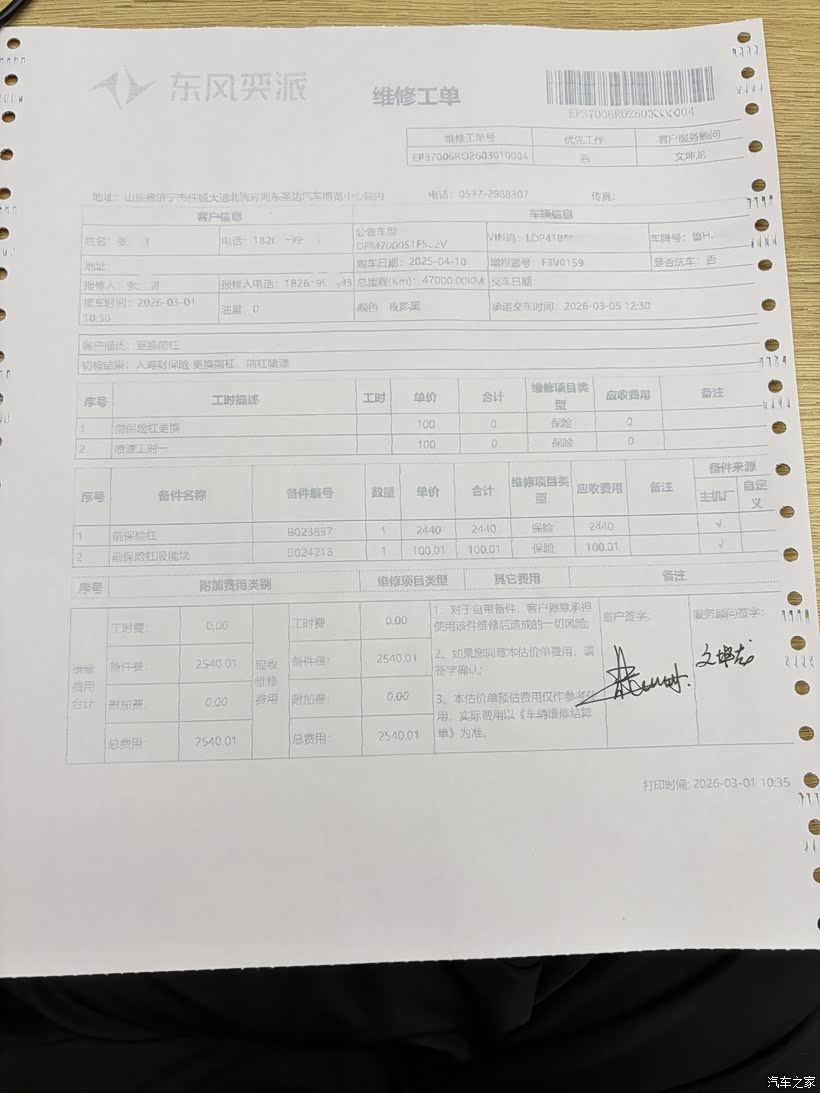 东风奕派
维修工单
维修工单号 优先工作 客户服务顾问
EP37006RO2603010004 否 文坤龙
地址：山东省济宁市任城大道北 电话：0537-2988307 传真：
客户信息 车辆信息
姓名：张 电话：182 公告车型： VIN码：LDP41B 车牌号：鲁H
地址： 购车日期：2025-04-10 增程器号：F3V0159 是否洗车：否
报修人： 报修人电话：1826 总里程(Km)：47000.00KM 交车日期：
接车时间：2026-03-01 10:30 油量：0 颜色：夜影黑 承诺交车时间：2026-03-05 12:30
客户描述：更换前杠
初检结果：人寿财保险 更换前杠，前杠喷漆
序号 工时描述 工时 单价 合计 维修项目类型 应收费用 备注
1 前保险杠更换 100 0 保险 0
2 喷漆工时一 100 0 保险 0
序号 备件名称 备件编号 数量 单价 合计 维修项目类型 应收费用 备注 备件来源
主机厂 自定义
1 前保险杠 BG23897 1 2440 2440 保险 2440 √
2 前保险杠吸能块 B024218 1 100.01 100.01 保险 100.01 √
序号 附加费用类别 维修项目类型 其它费用 备注
维修费用合计 应收维修费用
工时费： 0.00 工时费： 0.00
备件费： 2540.01 备件费： 2540.01
附加费： 0.00 附加费： 0.00
总费用： 2540.01 总费用： 2540.01
1、对于自带备件，客户愿意承担
使用该件维修后造成的一切风险;
2、如果您同意本估价单费用，请
签字确认;
3、本估价单预估费用仅作参考
用，实际费用以《车辆维修结算
单》为准。
客户签字： 服务顾问签字：
文坤龙
打印时间: 2026-03-01 10:35
汽车之家